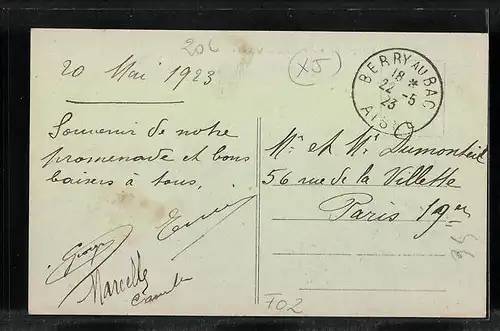 20c
(x5)
20 Mai 1923
BERRY AU BAC
18 *
22 -5
23
AISNE
Souvenir de notre
promenade et bons
baisers à tous.
Georges
Marcelle
Mr et Mme Dumonteil
56 rue de la Villette
Paris 19er
F02